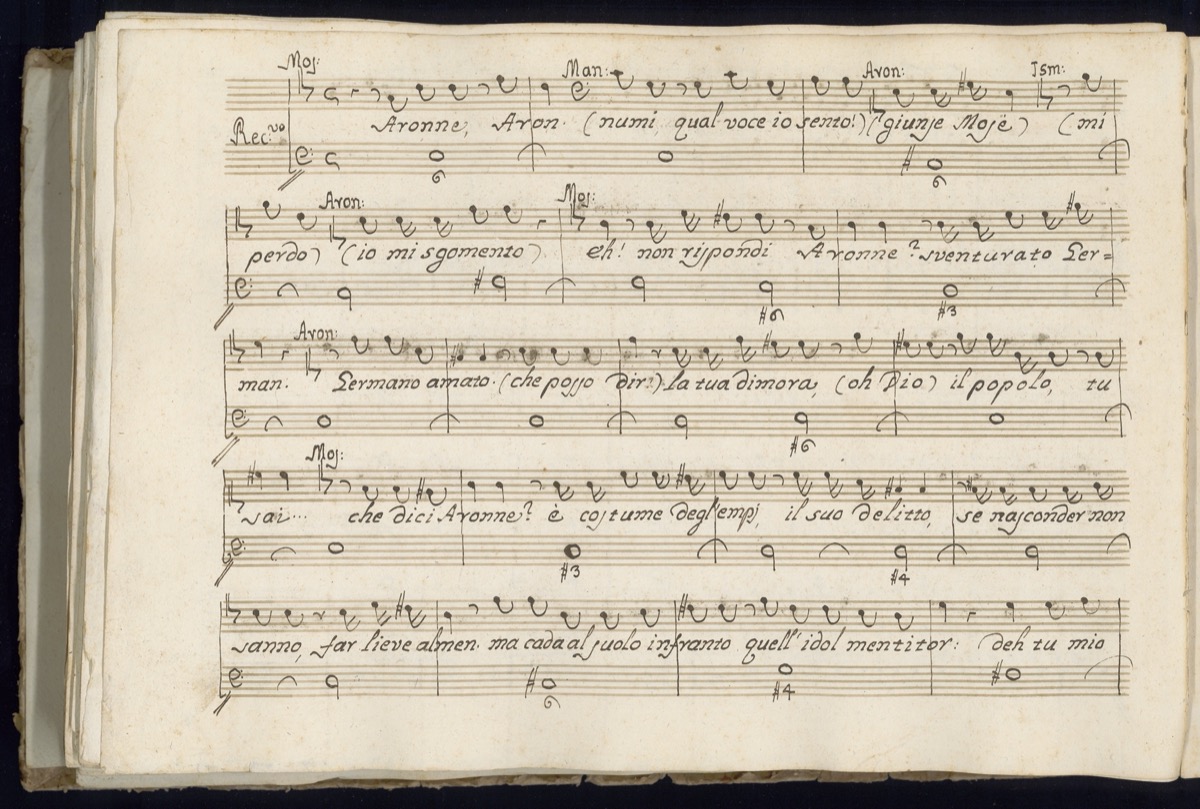 Mos: Man: Aron: Ism:
Rec:vo
Aronne, Aron. (numi qual voce io sento!) (giunse Mosè) (mi
6 6
Aron: Mos:
perdo) (io mi sgomento) eh! non rispondi Aronne? sventurato Ger=
#6 #3
Aron:
man. Germano amato. (che posso dir?) la tua dimora, (oh Dio) il popolo, tu
#6
Mos:
sai... che dici Aronne? è costume degl'empj, il suo delitto, se nasconder non
#3 #4
sanno, far lieve almen. ma cada al suolo infranto quell'idol mentitor: deh tu mio
6 #4